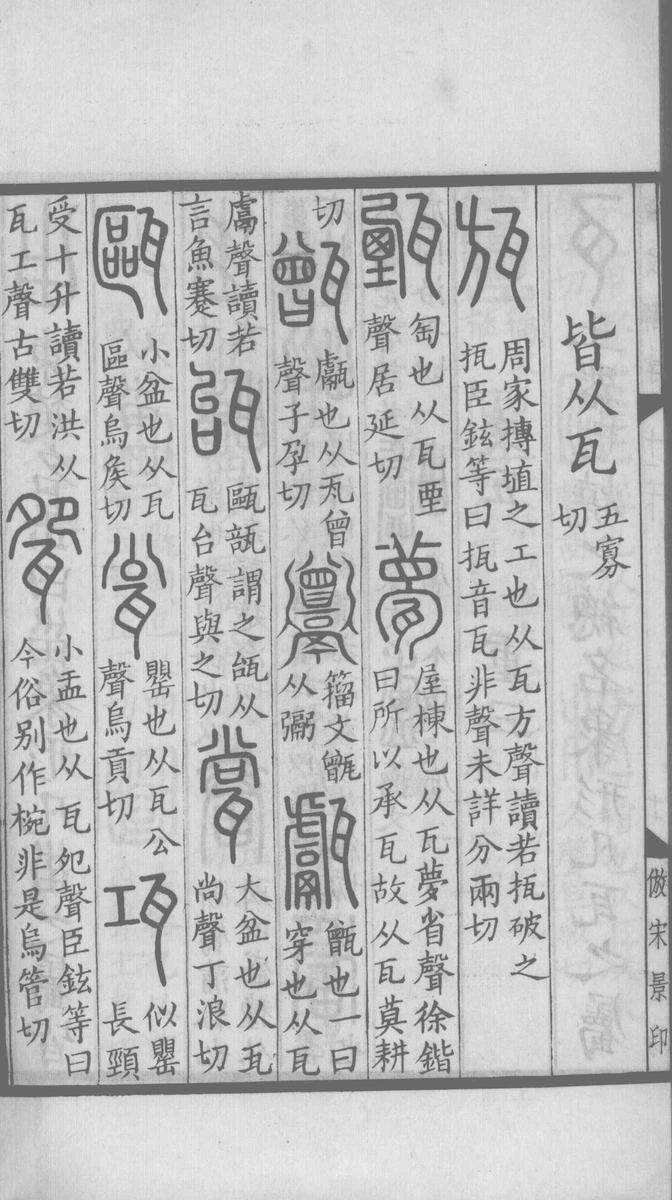 皆从瓦五寡切
瓬周家摶埴之工也从瓦方聲讀若㧚破之㧚臣鉉等曰㧚音瓦非聲未詳分兩切
甄匋也从瓦垔聲居延切甍屋棟也从瓦夢省聲徐鍇曰所以承瓦故从瓦莫耕
切甑甗也从瓦曾聲子孕切䰝籀文甑从䰜甗甑也一曰穿也从瓦
鬳聲讀若言魚蹇切瓵甌瓿謂之瓵从瓦台聲與之切瓽大盆也从瓦尚聲丁浪切
甌小盆也从瓦區聲烏矦切瓮罌也从瓦公聲烏貢切瓨似罌長頸
受十升讀若洪从瓦工聲古雙切㼝小盂也从瓦夗聲臣鉉等曰今俗别作椀非是烏管切
倣宋景印